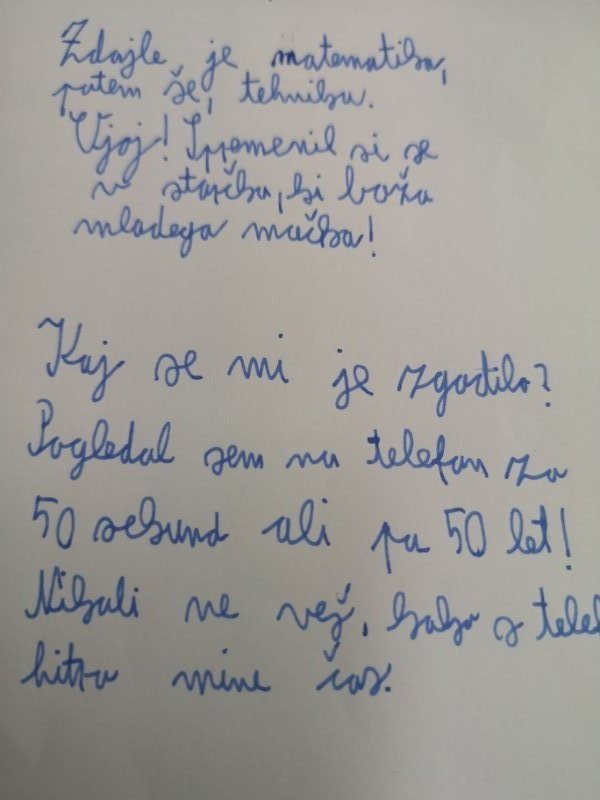 Zdajle je matematika,
potem še, tehnika.
Ojoj! Spremenil si se
v starčka, ki boža
mladega mačka!
Kaj se mi je zgodilo?
Pogledal sem na telefon za
50 sekund ali pa 50 let!
Nikoli ne veš, kako s telef
hitro mine čas.